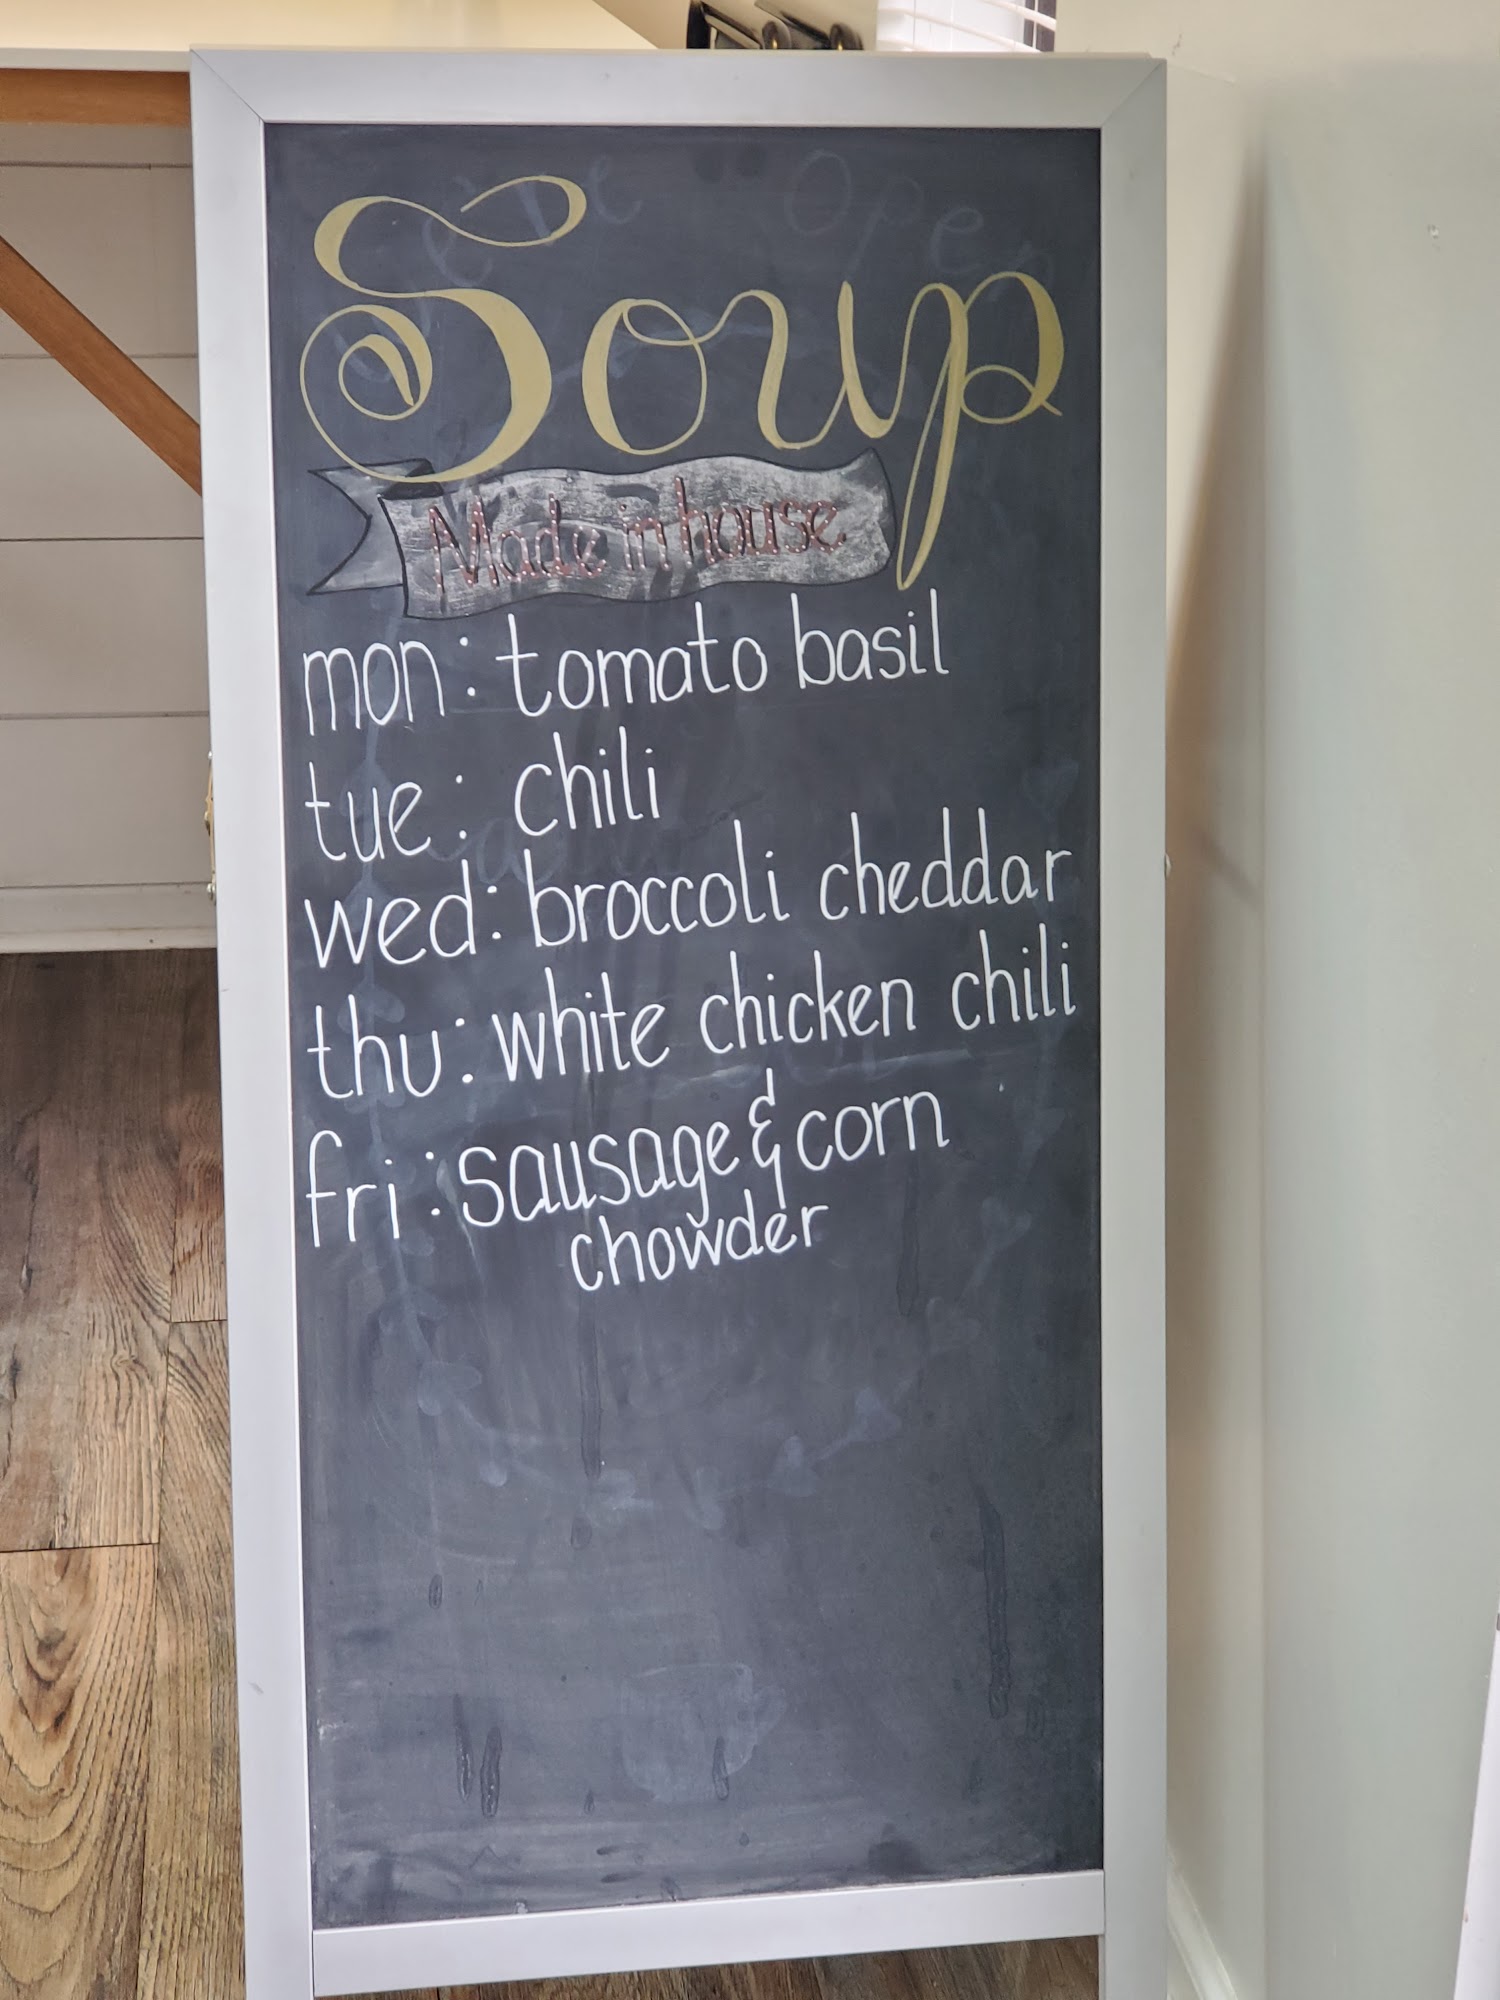 Soup
Made in house
mon: tomato basil
tue: chili
wed: broccoli cheddar
thu: white chicken chili
fri: sausage & corn
chowder